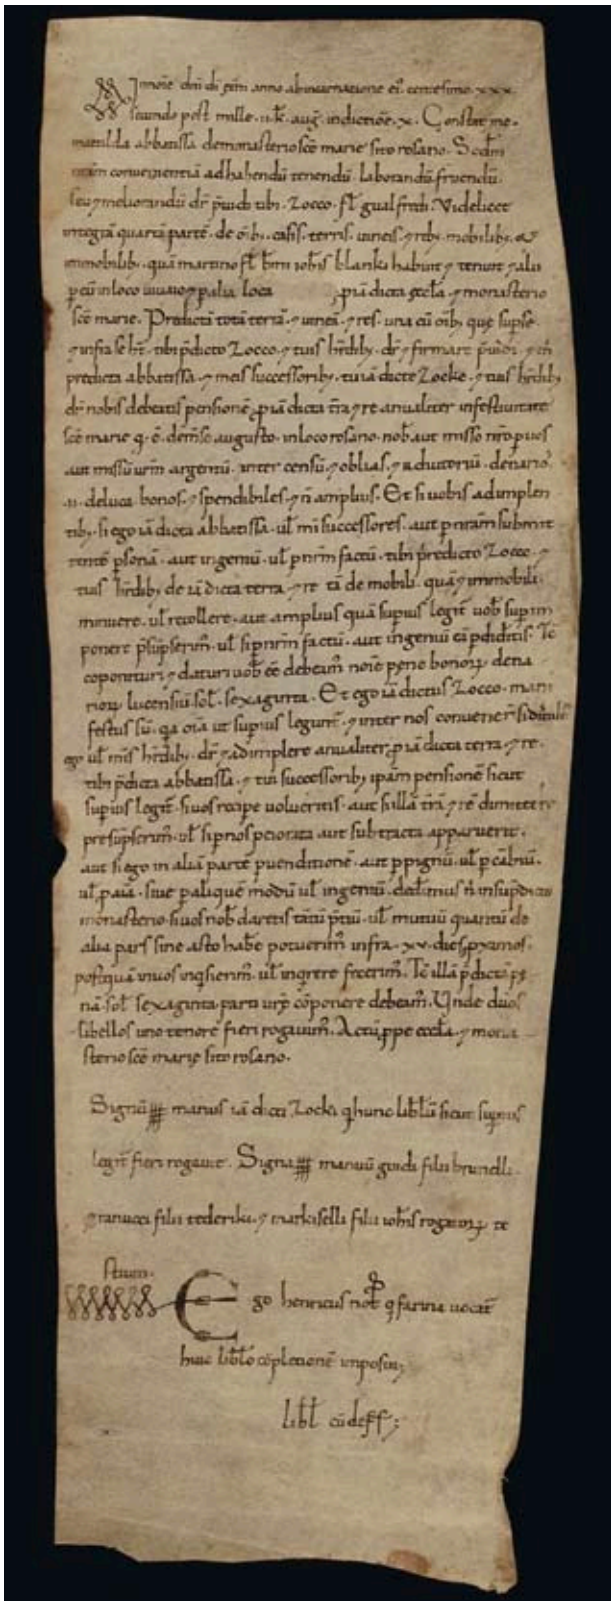 In noīe dnī dī etnī anno ab incarnatione ei'. centesimo. xxx.
secundo post mille. ii. k̄. aug̅. indictiōe. x. Constat me.
matilda abbatissa de monasterio scē marie sito rosano. Scdm̄
convenientiā ad habendū tenendū. laborandū fruendū.
seu ⁊ meliorandū dr̄ p̄vidi tibi. Zocco. fl̄. gualfredi. Videlicet
integrā quartā partē. de oīb;. casis. terris. vineis. ⁊ reb;. mobilib;. &
immobilib;. quā martino fl̄. bn̄i ioh̄is blanki habuit ⁊ tenuit ⁊ alii
p eū in loco ⁊ p alia loca ; p iā dicta eccl̄a. ⁊ monasterio
scē marie. Predictā totā terrā. ⁊ vineā. ⁊ res. una cū oīb;. que sup se
⁊ infra se hn̄t. tibi p̄dicto Zocco. ⁊ tuis hr̄dib;. dr̄ ⁊ firmare p̄vidi. ⁊
predicta abbatissa. ⁊ meis successorib;. tu iā dicte Zocke. ⁊ tuis hr̄dib;
dr̄ nobis debeatis pensionē p iā dicta tr̄a ⁊ re anualiter in festivitate
scē marie q. ē. de mēse augusto. in loco rosano. nob̄. aut misso nr̄o p vos
aut missū vr̄m argentū. inter censū ⁊ oblias. ⁊ adiutoriū. denario'.
ii. de luca. bonos. ⁊ spendibiles. ⁊ n̄ amplius. Et si vobis adimplen
tib;. si ego iā dicta abbatissa. ul̄ mī successores. aut p nrām submit
tentē psonā. aut ingeniū. ul̄ p nrm̄ factū. tibi p̄redicto Zocco. ⁊
tuis hr̄dib; de iā dicta terra ⁊ re tā de mobili. quā ⁊ immobili.
minuere. ul̄ recollere. aut amplius quā supius legit̄ vob̄ sup im
ponere p̄supserim̄. ul̄ si p nrm̄ factū. aut ingeniū eā pdiditis. Tē
coponituri ⁊ daturi vob̄ eē debeam̄ noīe pene bonoꝝ dena
rioꝝ lucensiū sol̄. sexaginta. Et ego iā dictus Zocco. mani
festus sū. q̄a oīa ut supius leguntr̄. ⁊ inter nos convenert̄
ego ul̄ meis hr̄dib;. dr̄ ⁊ adimplere anualiter p iā dicta terra ⁊ re.
tibi p̄dicta abbatissa. ⁊ tui successorib; ipām pensionē sicut
supius legit̄. si vos recipe volueritis. aut si illā tr̄ā ⁊ rē dimittere
presupserim̄. ul̄ si p nos peiorata aut subtracta apparuerit.
aut si ego in aliā partē p venditionē. aut p pignū. ul̄ p cābiū.
ul̄ p aīa. sive p aliquē modū ul̄ ingeniū. dederimus n̄ in sup̄dicto
monasterio. si vos nob̄ daretis tātū p̄tiū. ul̄ mutuū quantū de
alia pars sine asto habe potuerim̄ infra. xv. dies pximos.
postquā in vos inq̄sierim̄. ul̄ inq̄rere fecerim̄. Tē illā p̄dictā pe
nā sol̄. sexaginta parti vr̄e cōponere debeam̄. Unde duos
libellos uno tenore fieri rogavim̄. Actū ppe eccl̄a. ⁊ mona
sterio scē marie sito rosano.
Signū manus iā dicti Zocki q̄ hunc libl̄lū sicut supius
legit̄ fieri rogavit. Signa manuū guidi filii brunelli.
⁊ ranucci filii tederiki. ⁊ markiselli filii ioh̄is rogatoꝝ te
stium.
Ego henricus not̄ q̄ farina vocat̄
huic libl̄lo cōpletionē imposui;
libl̄l cū